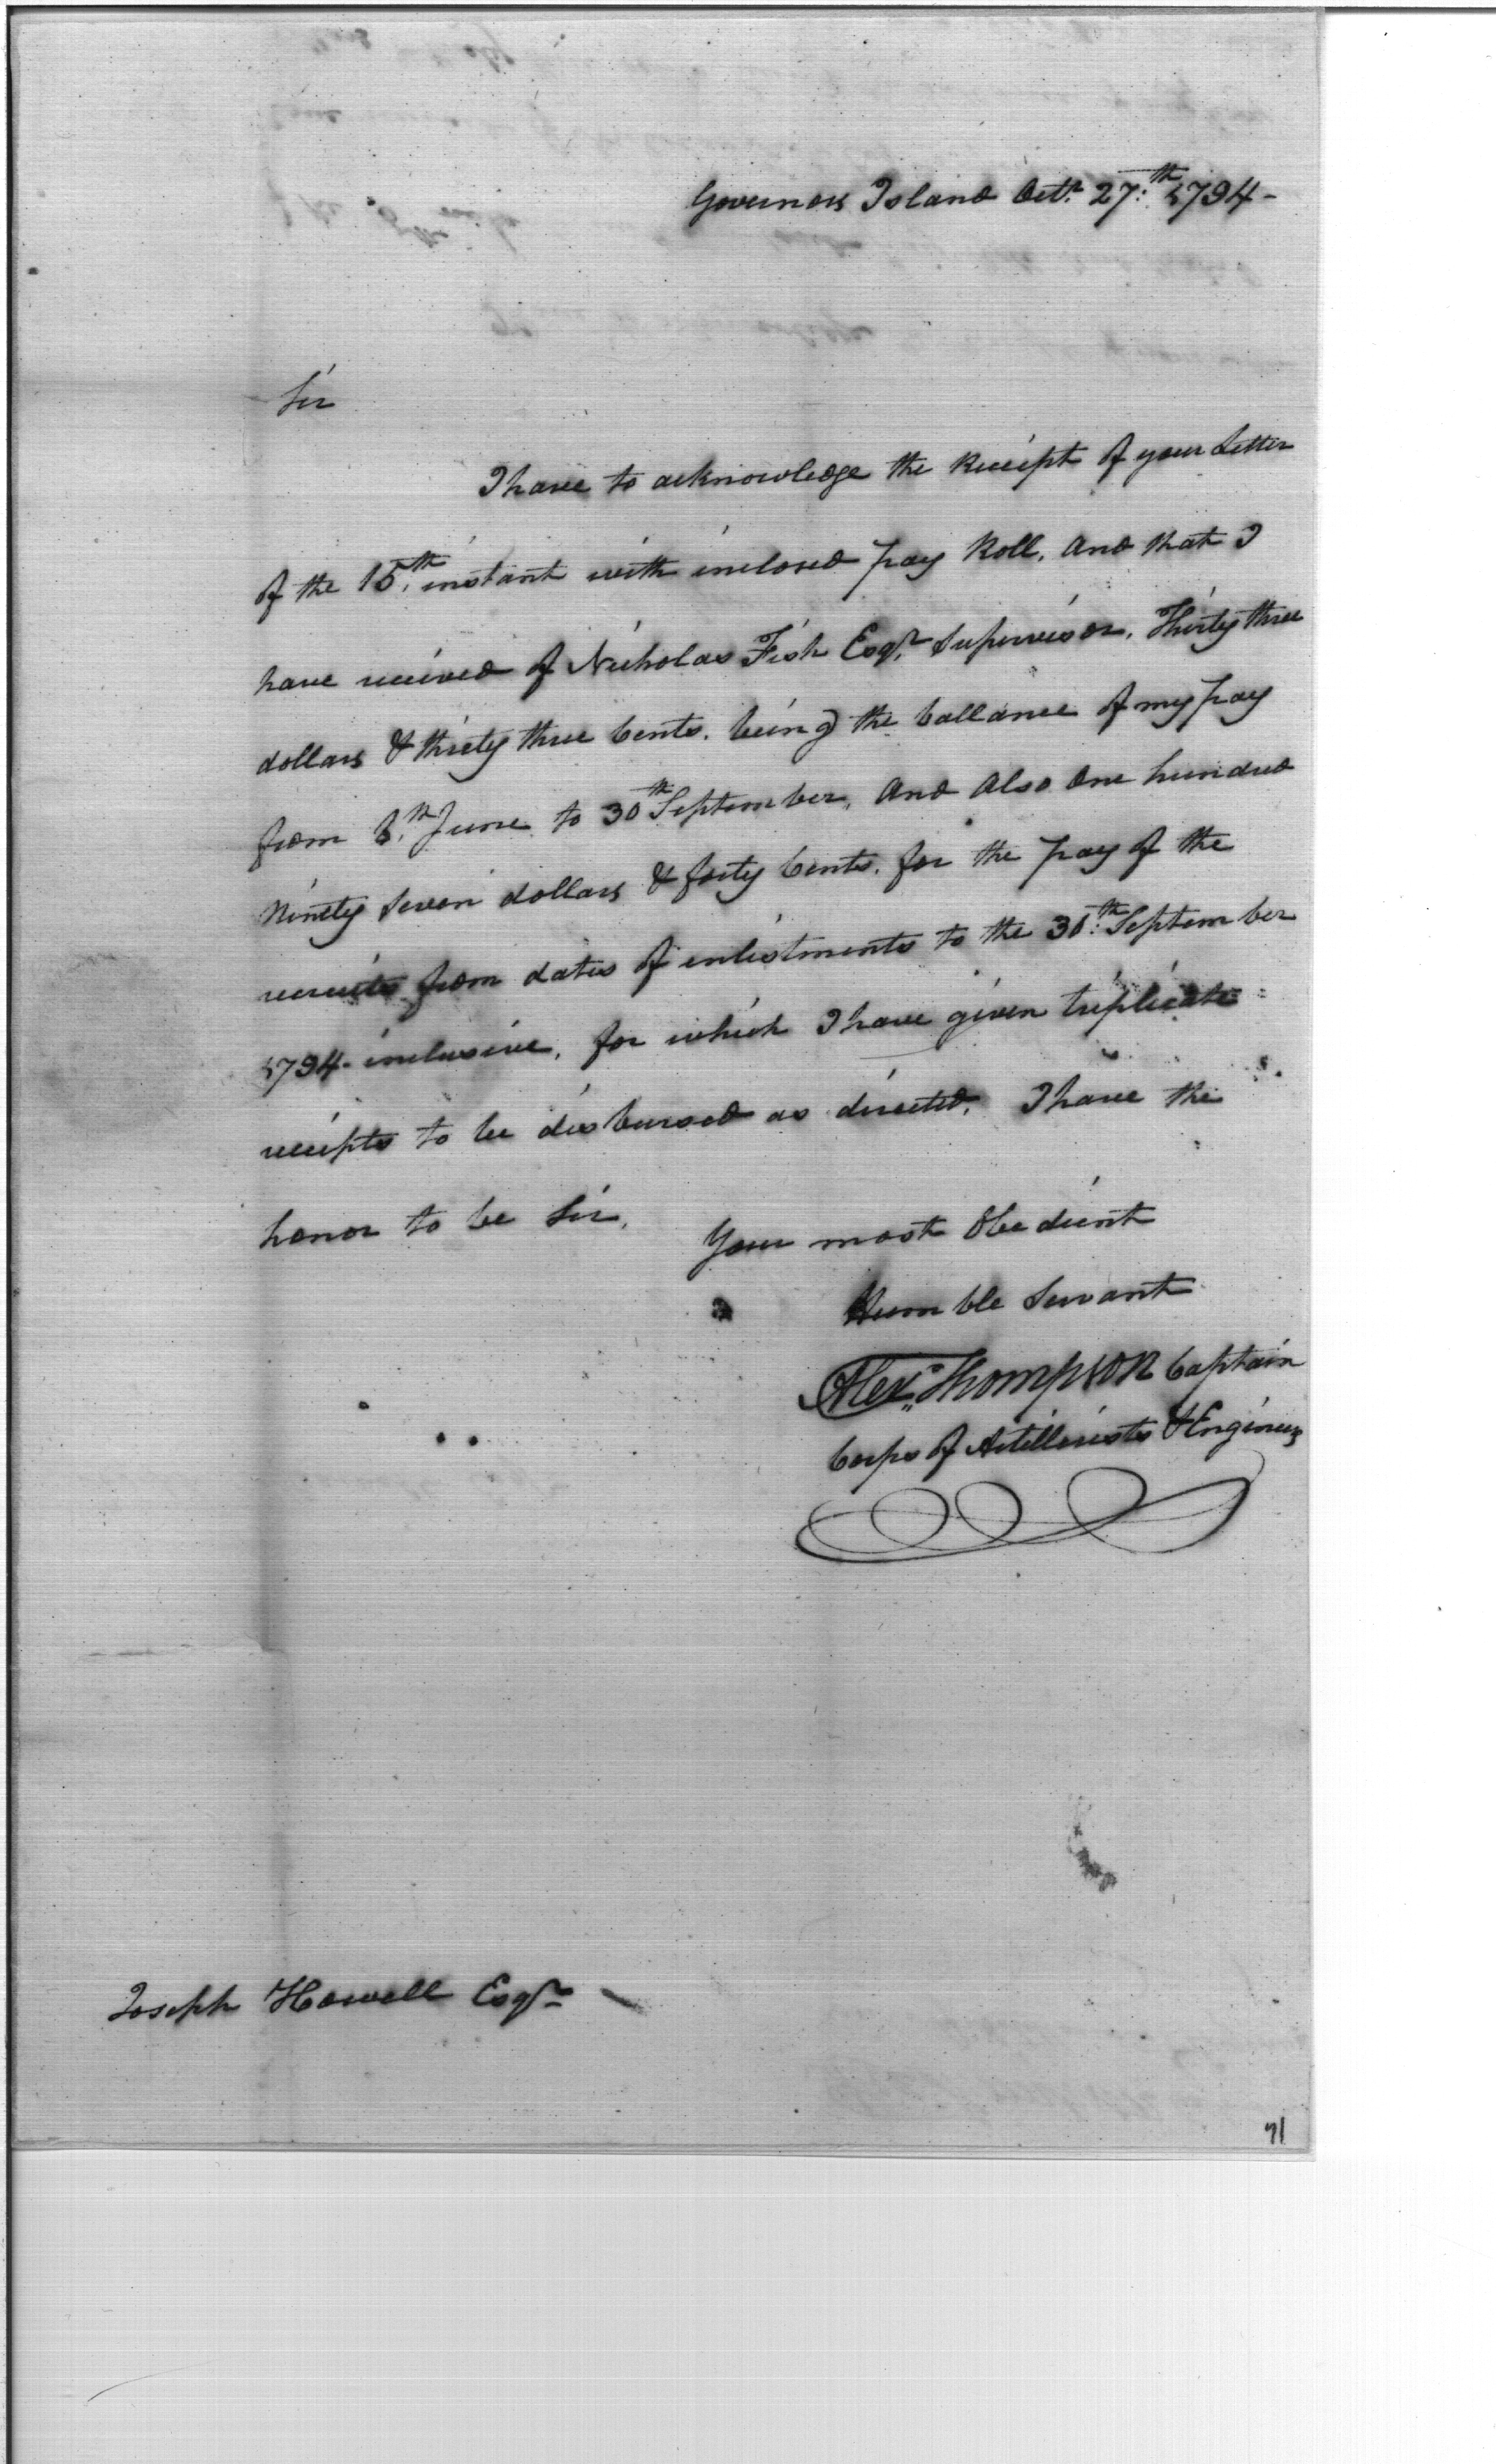 Governors Island Octr. 27th. 1794-
Sir
I have to acknowledge the Receipt of your Letter
of the 15th. instant with inclosed pay Roll, and that I
have received of Nicholas Fish Esqr. Supervisor, Thirty three
dollars & thirty three Cents. being the ballance of my pay
from th. June to 30th September, and also One hundred
Ninety Seven dollars & forty Cents. for the pay of the
recruits from dates of enlistments to the 30th. September
1794- inclusive, for which I have given triplicate
receipts to be disbursed as directed. I have the
honor to be Sir,
Your most Obedient
Humble Servant
Alexr. Thompson Captain
Corps of Artillerists & Engineers
Joseph Howell Esqr
71